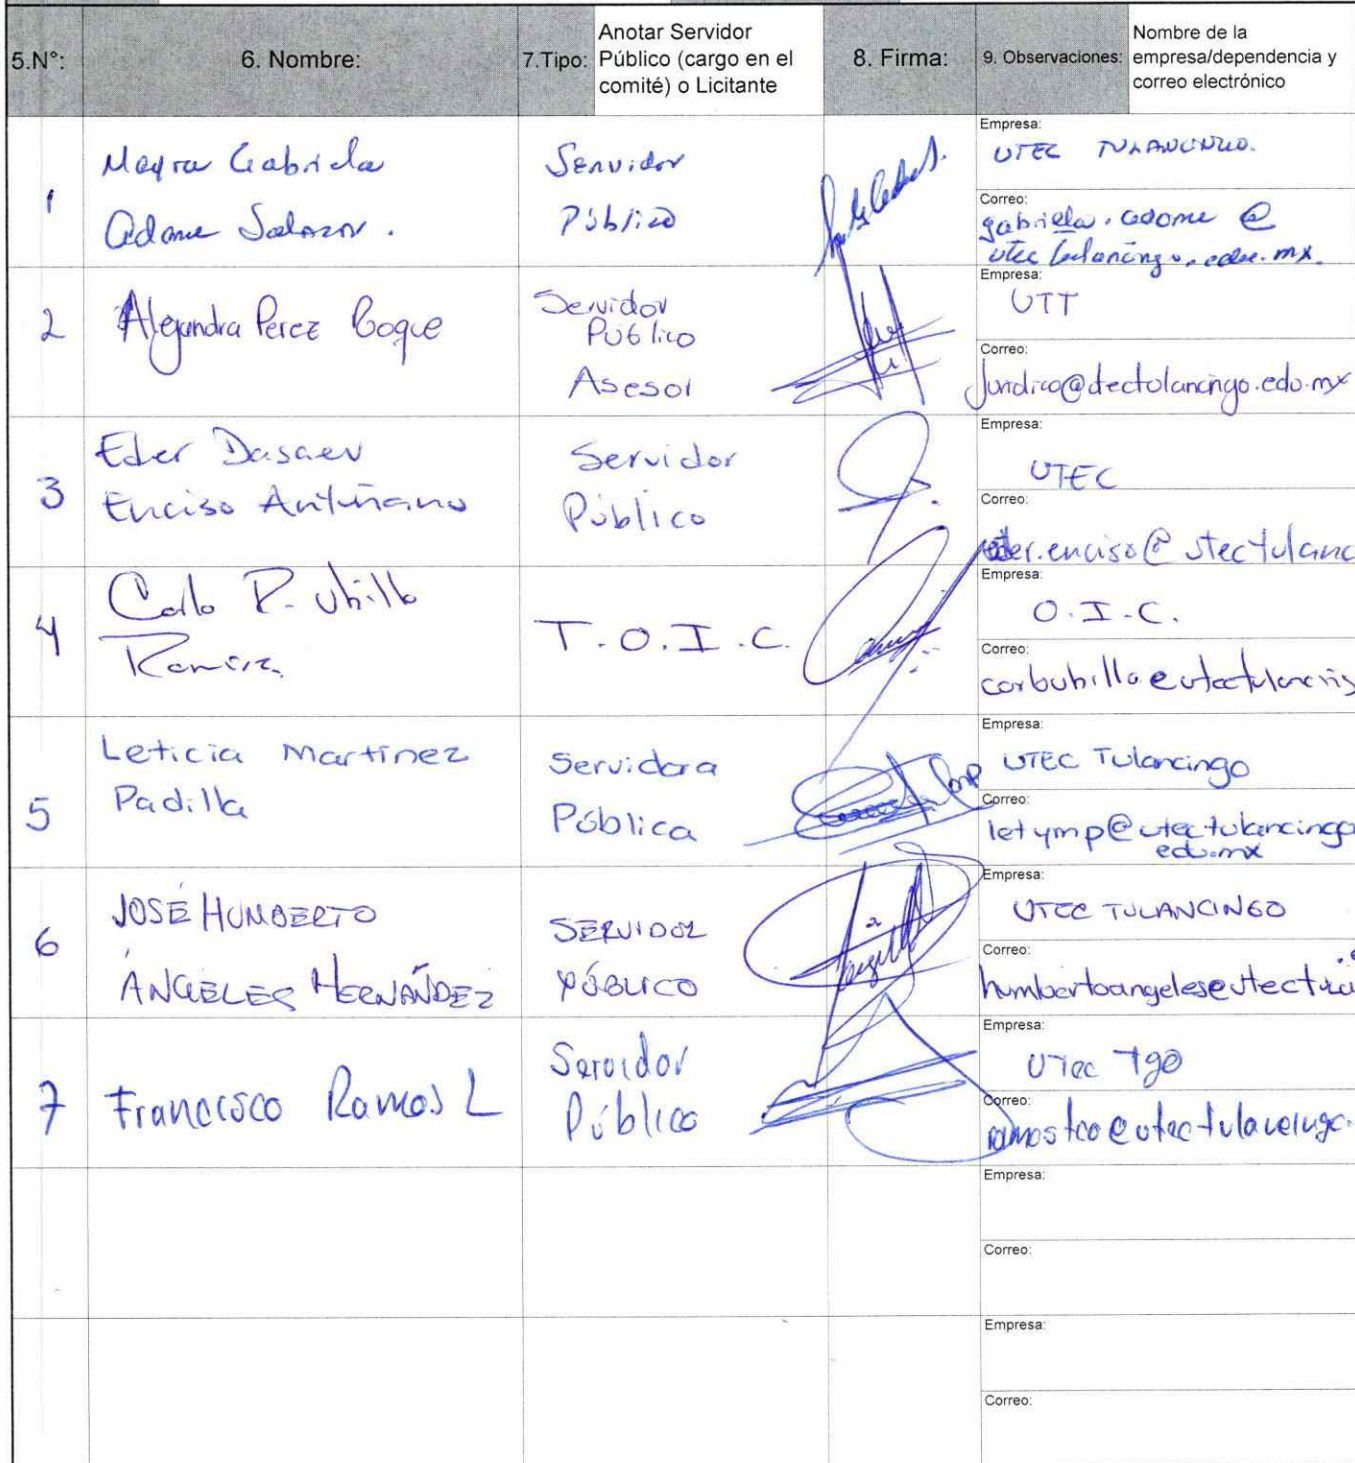 5.N°:
6. Nombre:
7.Tipo:
Anotar Servidor
Público (cargo en el
comité) o Licitante
8. Firma:
9. Observaciones:
Nombre de la
empresa/dependencia y
correo electrónico
1
Mayra Gabriela
Adame Salazar.
Servidor
Público
Empresa:
UTEC TULANCINGO.
Correo:
gabriela.adame@
utectulancingo.edu.mx.
2
Alejandra Perez Roque
Servidor
Público
Asesor
Empresa:
UTT
Correo:
Juridico@utectulancingo.edu.mx
3
Eder Dasaev
Enciso Antuñano
Servidor
Público
Empresa:
UTEC
Correo:
eder.enciso@utectulanc
4
R. Ubilla
Ramírez
T.O.I.C.
Empresa:
O.I.C.
Correo:
5
Leticia Martínez
Padilla
Servidora
Pública
Empresa:
UTEC Tulancingo
Correo:
letymp@utectulancingo
edu.mx
6
JOSÉ HUMBERTO
ÁNGELES HERNÁNDEZ
SERVIDOR
PÚBLICO
Empresa:
UTEC TULANCINGO
Correo:
7
Francisco Ramos L
Servidor
Público
Empresa:
UTec Tgo
Correo:
Empresa:
Correo:
Empresa:
Correo: